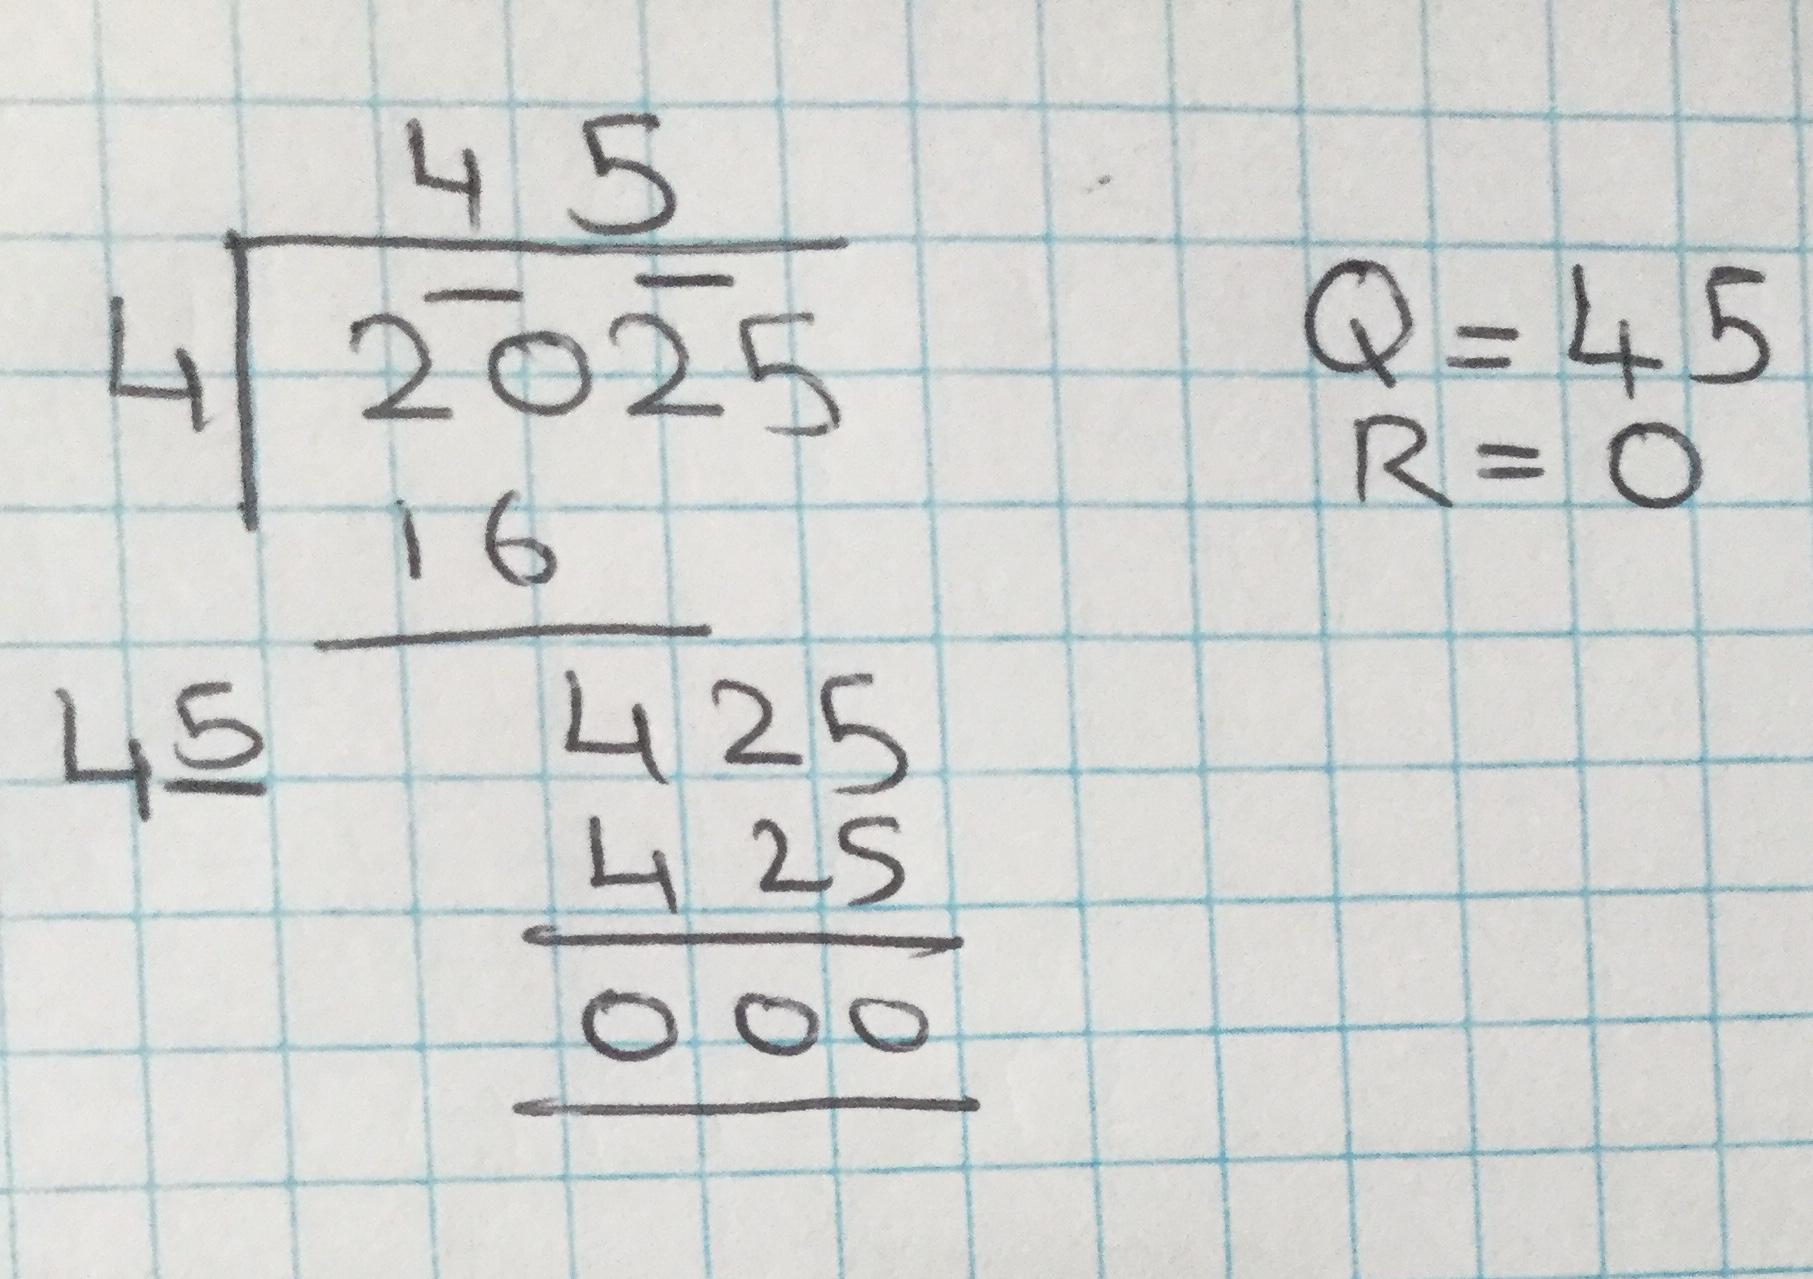 45
4 2025
16
45 425
425
000
Q = 45
R = 0